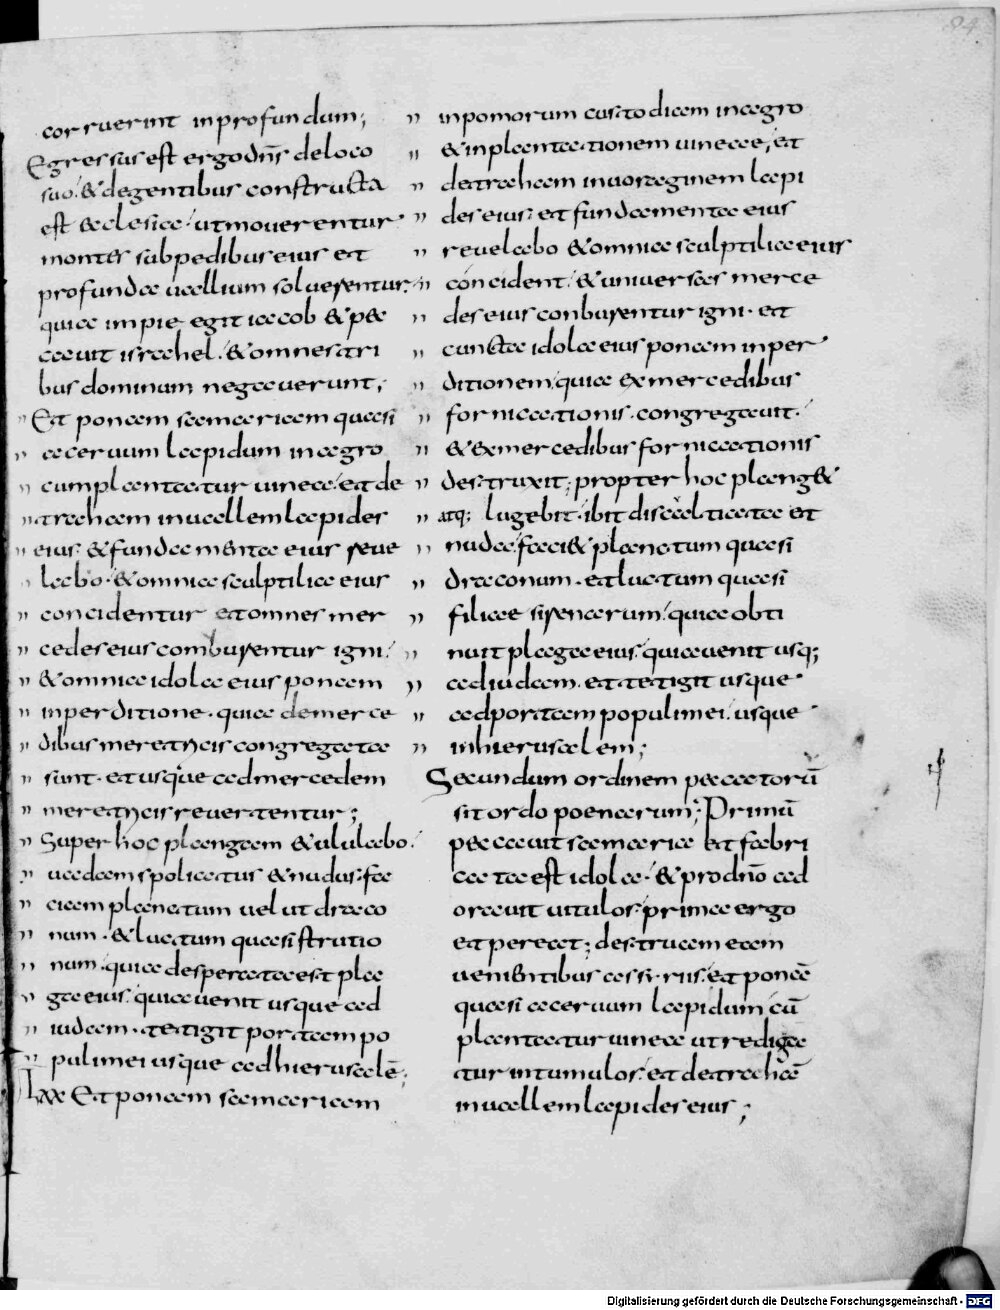 84
corruerint inprofundum;
Egressus est ergo dn̄s deloco
suo. & degentibus constructa
est æclesiae. utmouerentur
montes subpedibus eius et
profunda uallium soluerentur.
quiae impie egit iacob & pec
cauit israhel. & omnes tri
bus dominum negauerunt;
" Et ponam samariam quasi
" aceruum lapidum inagro
" cumplantatur uinea. et de
" traham inuallem lapides
" eius. & fundamenta eius reue
" labo. & omnia sculptilia eius
" concidentur et omnes mer
" cedes eius comburentur igni.
" & omnia idola eius ponam
" inperditione. quia demerce
" dibus meretricis congregata
" sunt. et usque ad mercedem
" meretricis reuertentur;
" Super hoc plangam & ululabo.
" uadam spoliatus & nudus. fa
" ciam planctum uelut draco
" num. & luctum quasi strutio
" num. quia desperata est pla
" ga eius. quia uenit usque ad
" iudam. tetigit portam po
" puli mei usque adhierusalē;
Lxx Et ponam samariam
" inpomorum custodiam inagro
" & inplantationem uineae, et
" detraham inuoraginem lapi
" des eius. et fundamenta eius
" reuelabo & omnia sculptilia eius
" concident. & uniuersas merce
" des eius conburentur igni. et
" cunctae idola eius ponam inper
" ditionem, quia exmercedibus
" fornicationis. congregauit.
" & exmercedibus fornicationis
" destruxit; propter hoc plang&
" atq; lugebit. ibit discalciata et
" nuda. faci& planctum quasi
" draconum. et luctum quasi
" filiae sirenarum. quia obti
" nuit plaga eius. quia uenit usq;
" ad iudam. et tetigit usque
" ad portam populi mei. usque
" inhierusalem;
Secundum ordinem peccatorū
sit ordo poenarum; Primū
peccauit samaria et fabri
cata est idola. & prodn̄o ad
orauit uitulos. prima ergo
et pereat; destruam eam
uenientibus assiriis. et ponā
quasi aceruum lapidum cū
plantatur uinea ut rediga
tur intumulos. et detrahā
inuallem lapides eius;
Digitalisierung gefördert durch die Deutsche Forschungsgemeinschaft - DFG